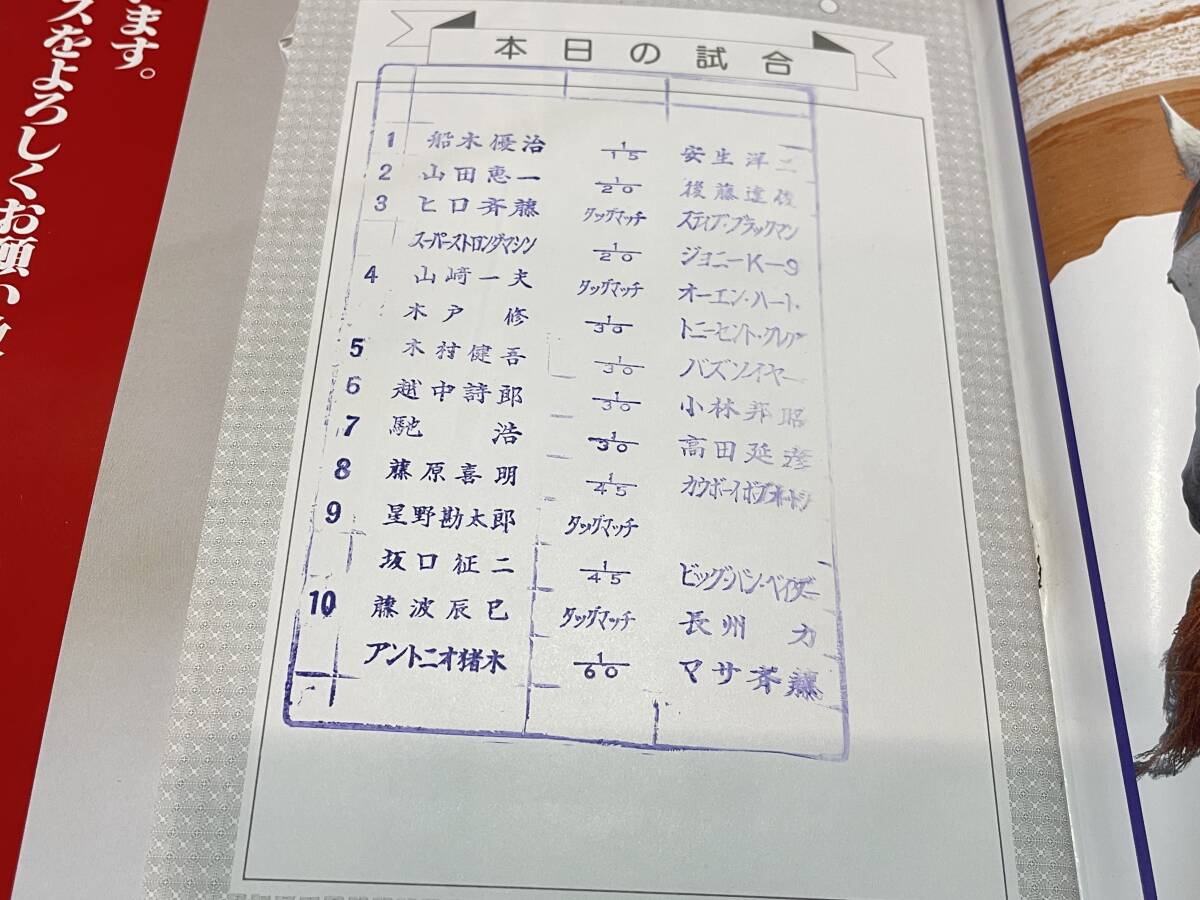 ます。
スをよろしくお願い
本日の試合
1 船木優治 1/15 安生洋二
2 山田恵一 1/20 後藤達俊
3 ヒロ斉藤 タッグマッチ スティブ・ブラックマン
スーパーストロングマシン 1/20 ジョニーK-9
4 山崎一夫 タッグマッチ オーエン・ハート
木戸修 1/30 トニーセント・クレアー
5 木村健吾 1/30 バズソイヤー
6 越中詩郎 1/30 小林邦昭
7 馳浩 1/30 高田延彦
8 藤原喜明 1/45 カウボーイボブオートン
9 星野勘太郎 タッグマッチ
坂口征二 1/45 ビッグ・バン・ベイダー
10 藤波辰巳 タッグマッチ 長州力
アントニオ猪木 1/60 マサ斉藤